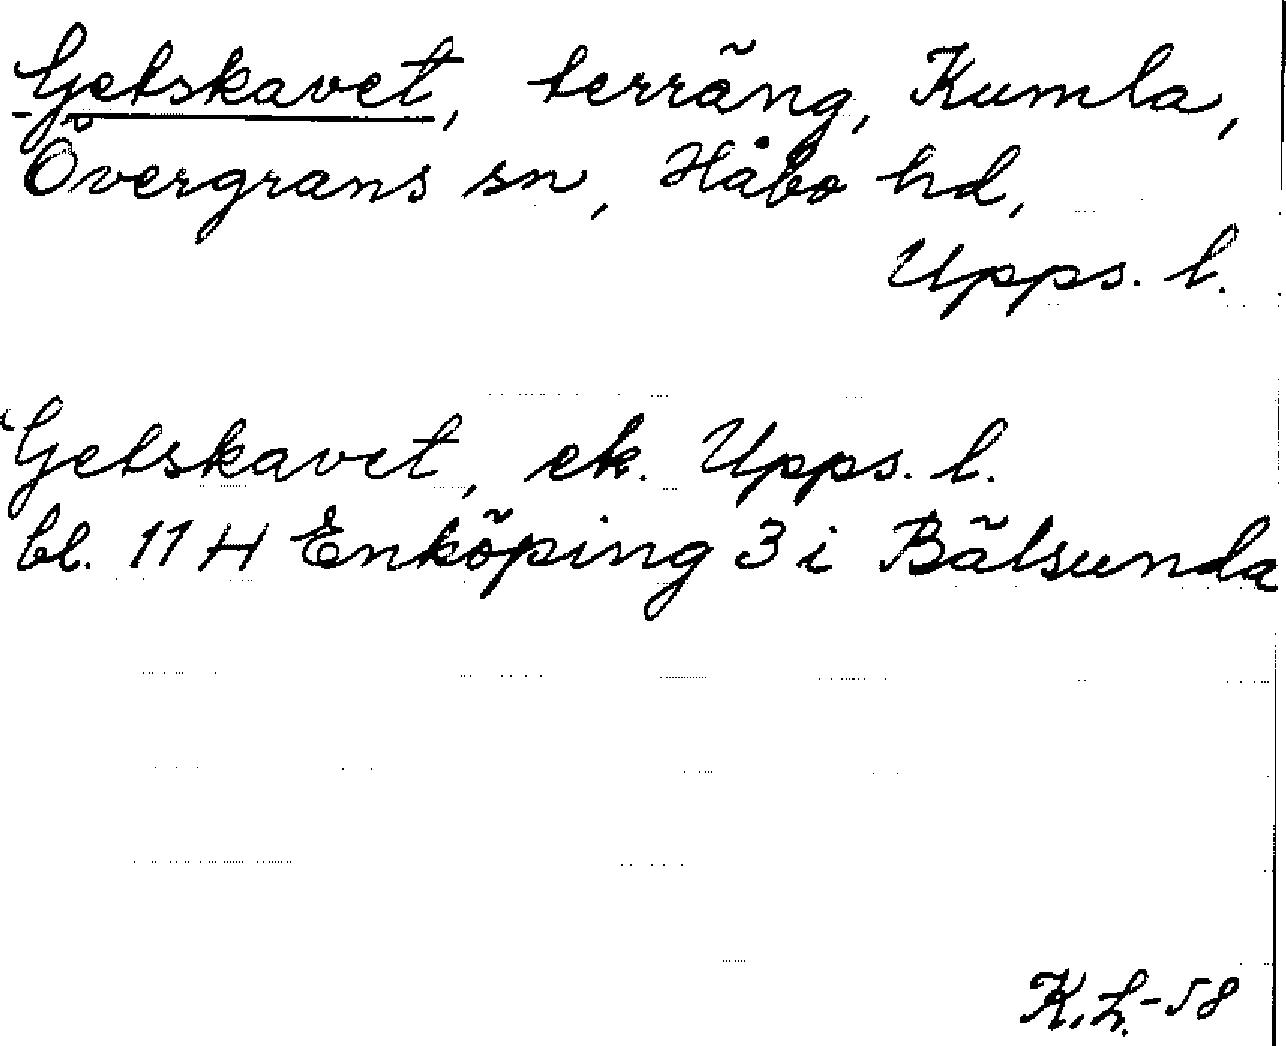 Getskavet, terräng, Kumla,
Övergrans sn, Håbo hd,
Upps. l.
Getskavet, ek. Upps. l.
bl. 11 H Enköping 3 i Bälsunda
K.L.-58